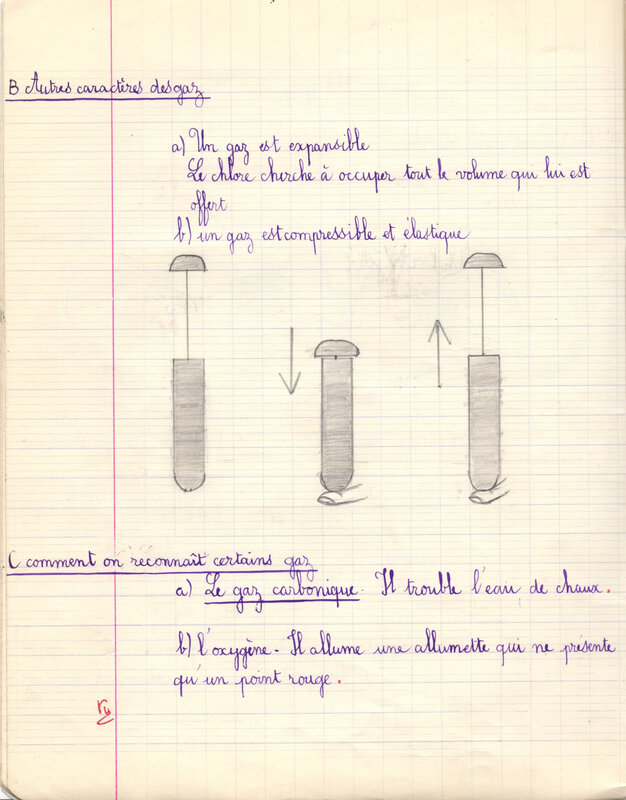 B Autres caractères des gaz
a) Un gaz est expansible
Le chlore cherche à occuper tout le volume qui lui est
offert
b) un gaz est compressible et élastique
C comment on reconnaît certains gaz
a) Le gaz carbonique. Il trouble l'eau de chaux.
b) l'oxygène - Il allume une allumette qui ne présente
qu'un point rouge.